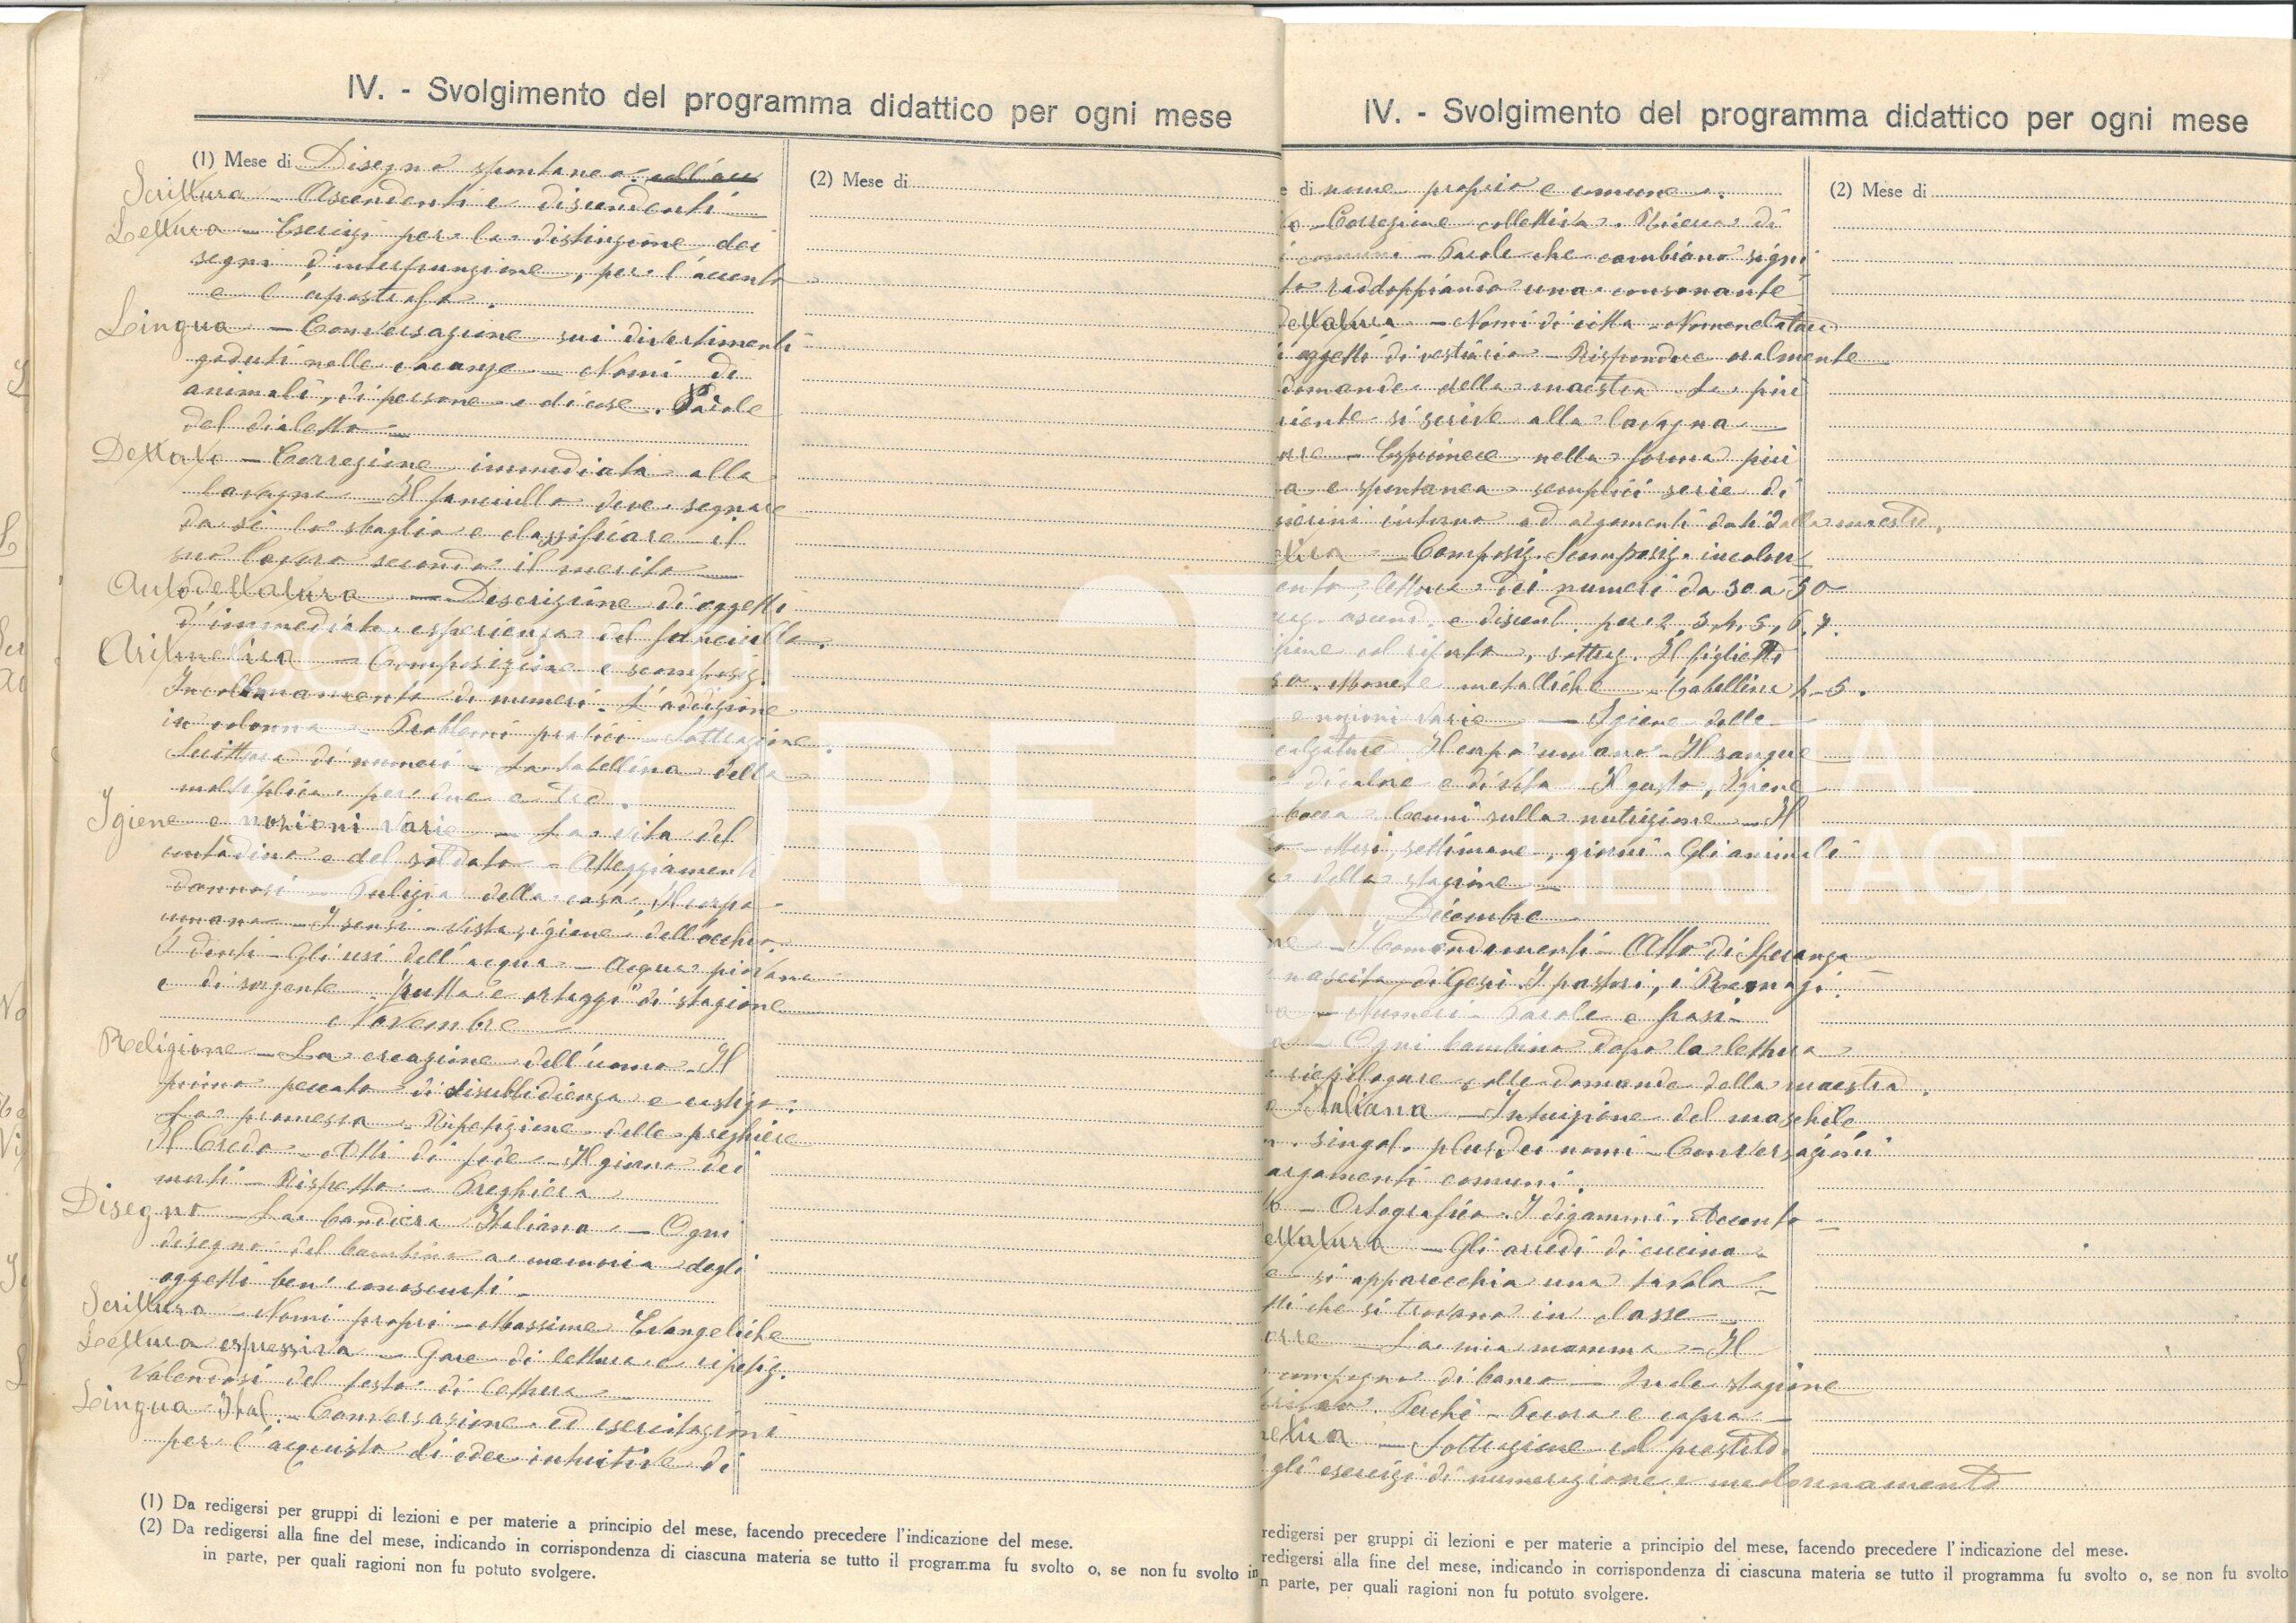 IV. - Svolgimento del programma didattico per ogni mese
(1) Mese di Disegno spontaneo.
Scrittura - Ascendenti e discendenti
Lettura - Esercizi per la distinzione dei
segni d'interpunzione, per l'accento
e l'apostrofo.
Lingua - Conversazione sui divertimenti
goduti nelle vacanze - Nomi di
animali, di persone e di cose. Parole
del dialetto -
Dettato - Correzione immediata alla
lavagna - Il fanciullo deve segnare
da sè lo sbaglio e classificare il
suo lavoro secondo il merito
Autodettatura - Descrizione di oggetti
d'immediata esperienza del fanciullo.
Aritmetica - Composizione e scomposiz.
Incolonnamento di numeri - L'addizione
in colonna - Problemi pratici - Sottrazione.
Scrittura di numeri - La tabellina della
moltiplica. per due e tre.
Igiene e nozioni varie - La vita del
contadino e del soldato - Atteggiamenti
dannosi - Pulizia della casa. Il corpo
umano - I sensi - vista, igiene dell'occhio.
I denti - Gli usi dell'acqua - Acqua piovana
e di sorgente - Frutta e ortaggi di stagione
Novembre
Religione - La creazione dell'uomo - Il
primo peccato di disubbidienza e castigo.
La promessa - Ripetizione delle preghiere
Il Credo - Atti di fede - Il giorno dei
morti - Rispetto - Preghiera
Disegno - La bandiera Italiana - Ogni
disegno del bambino a memoria degli
oggetti ben conosciuti -
Scrittura - Nomi propri - Massime Evangeliche
Lettura espressiva - Gare di lettura e ripetiz.
valendosi del testo di lettura
Lingua Ital. - Conversazione ed esercitazioni
per l'acquisto di idee intuitive di
(2) Mese di
(1) Da redigersi per gruppi di lezioni e per materie a principio del mese, facendo precedere l'indicazione del mese.
(2) Da redigersi alla fine del mese, indicando in corrispondenza di ciascuna materia se tutto il programma fu svolto o, se non fu svolto in
in parte, per quali ragioni non fu potuto svolgere.
IV. - Svolgimento del programma didattico per ogni mese
e di nome proprio e comune.
o - Correzione collettiva. Ricerca di
comuni - Parole che cambiano signi
to raddoppiando una consonante
dettatura - Nomi di città - Nomenclatura
oggetti di vestiario - Rispondere oralmente
domande della maestra. La più
si scrive alla lavagna -
orre - Esprimere nella forma più
a e spontanea semplici serie di
sierini intorno ad argomenti dati dalla maestra.
tica - Composiz. Scomposiz. incolon
ento, lettura dei numeri da 30 a 50
ascend. e discend. per 2, 3, 4, 5, 6, 7.
zione col riporto, sottraz. Il biglietto
50. Monete metalliche - Tabelline 4-5.
e nozioni varie - Igiene delle
calzature. Il corpo umano - Il sangue
di calore e di vita. Il gusto, Igiene
bocca. Cenni sulla nutrizione - Il
o - Mesi, settimane, giorni. Gli animali
e della stagione -
Dicembre
ne - I Comandamenti - Atto di Speranza
nascita di Gesù. I pastori, i Re magi.
ra - Numeri - Parole e frasi -
a - Ogni bambino dopo la lettura
riepilogare colle domande della maestra.
a Italiana - Intuizione del maschile
singol. plur. dei nomi - Conversazioni
argomenti comuni.
to - Ortografico. I digammi. Accento -
ettatura - Gli arredi di cucina -
e si apparecchia una tavola -
tti che si trovano in classe
orre - La mia mamma - Il
compagno di banco - Sulla stagione
Perchè - Pecora e capra -
netica - Sottrazione col prestito.
gli esercizi di numerazione e incolonnamento
(2) Mese di
redigersi per gruppi di lezioni e per materie a principio del mese, facendo precedere l'indicazione del mese.
redigersi alla fine del mese, indicando in corrispondenza di ciascuna materia se tutto il programma fu svolto o, se non fu svolto
n parte, per quali ragioni non fu potuto svolgere.
COMUNE
FIORE
DIGITAL
HERITAGE